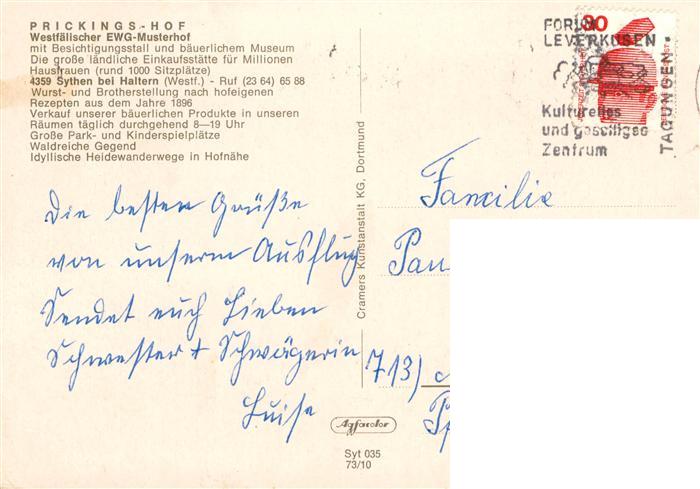 PRICKINGS-HOF
Westfälischer EWG-Musterhof
mit Besichtigungsstall und bäuerlichem Museum
Die große ländliche Einkaufsstätte für Millionen
Hausfrauen (rund 1000 Sitzplätze)
4359 Sythen bei Haltern (Westf.) - Ruf (23 64) 65 88
Wurst- und Brotherstellung nach hofeigenen
Rezepten aus dem Jahre 1896
Verkauf unserer bäuerlichen Produkte in unseren
Räumen täglich durchgehend 8—19 Uhr
Große Park- und Kinderspielplätze
Waldreiche Gegend
Idyllische Heidewanderwege in Hofnähe
Die besten Grüße
von unserem Ausflug
Sendet euch Lieben
Schwester + Schwägerin
Luise
Cramers Kunstanstalt KG, Dortmund
Agfacolor
Syt 035
73/10
30
FORUM
LEVERKUSEN
Kulturelles
und geselliges
Zentrum
TAGUNGEN
Familie
Pau
713)